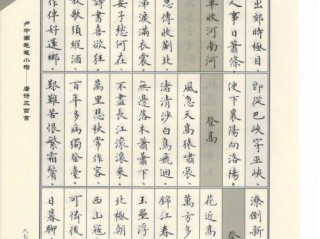 出郊時極目
人事日蕭條
軍收河南河
傳收薊北
涕淚滿衣裳
妻子愁何在
詩書喜欲狂
放歌須縱酒
作伴好還鄉
即從巴峽穿巫峽
便下襄陽向洛陽
登高
風急天高猿嘯哀
渚清沙白鳥飛迴
無邊落木蕭蕭下
不盡長江滾滾來
萬里悲秋常作客
百年多病獨登臺
艱難苦恨繁霜鬢
潦倒新
登
花近高
萬方多
錦江春
玉壘浮
北極朝
西山寇
可憐後
日暮聊
卢中南毛笔小楷 唐诗三百首
八七